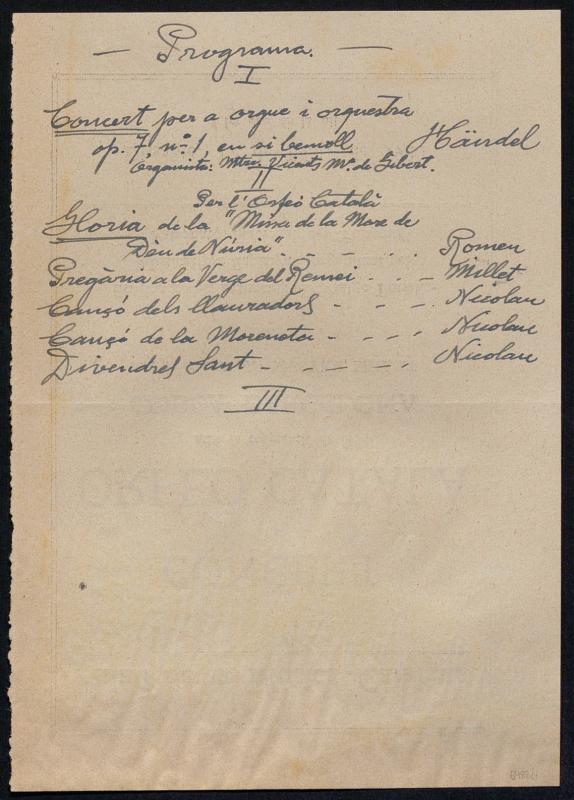 — Programa. —
I
Concert per a orgue i orquestra
op. 7 nº 1, en si bemoll Händel
Organista: Mtre. Vicents Mª. de Gibert.
II
Per l'Orfeó Català
Gloria de la "Missa de la Mare de
Dèu de Núria" - - - - - Romeu
Pregària a la Verge del Remei - - - Millet
Cançó dels llauradors - - - - Nicolau
Cançó de la Moreneta - - - - Nicolau
Divendres Sant - - - - - Nicolau
III
ORFEÓ CATALÀ